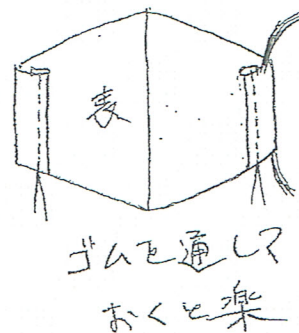 表
ゴムを通して
おくと楽